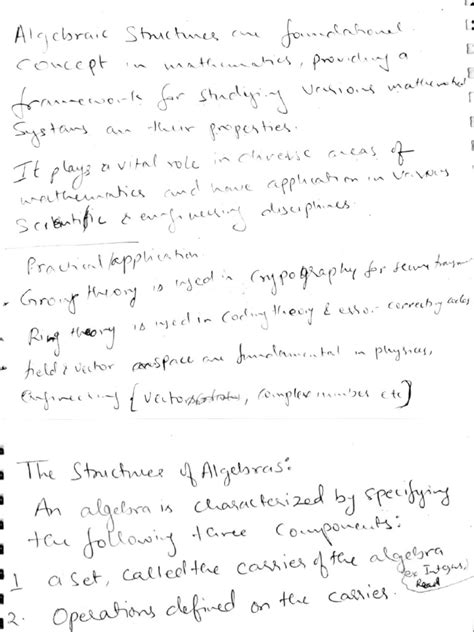 Algebraic Structures are foundational
concept in mathematics, providing a
framework for studying various mathematical
Systems an their properties.
It plays a vital role in diverse areas of
mathematics and have application in various
Scientific & engineering disciplines.
Practical/application
Group theory is used in Crypography for secure
Ring theory is used in Coding theory & error correcting codes
field & vector space are fundamental in physices,
Engineering [vector, complex numbers etc]
The Structures of Algebras:
An algebra is characterized by specifying
the following three Components:
1 a Set, called the carries of the algebra
ex Integers,
Read
2. Operations defined on the carries.